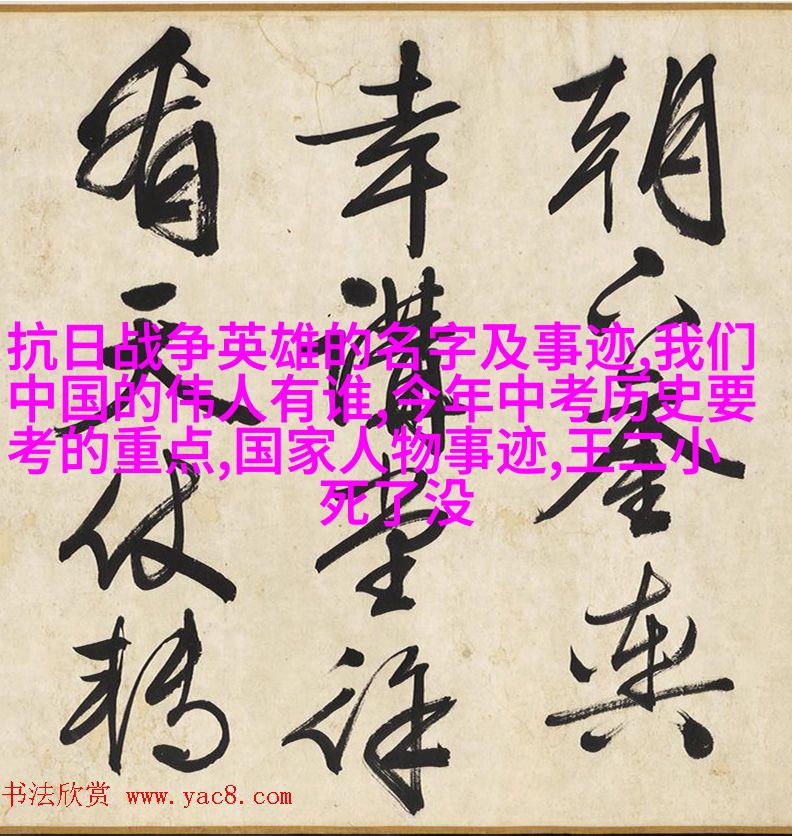 朝舆
幸講堂徐
看天仗转
抗日战争英雄的名字及事迹,我们
中国的伟人有谁,今年中考历史要
考的重点,国家人物事迹,王二小
死了没
书法欣赏 www.yac8.com